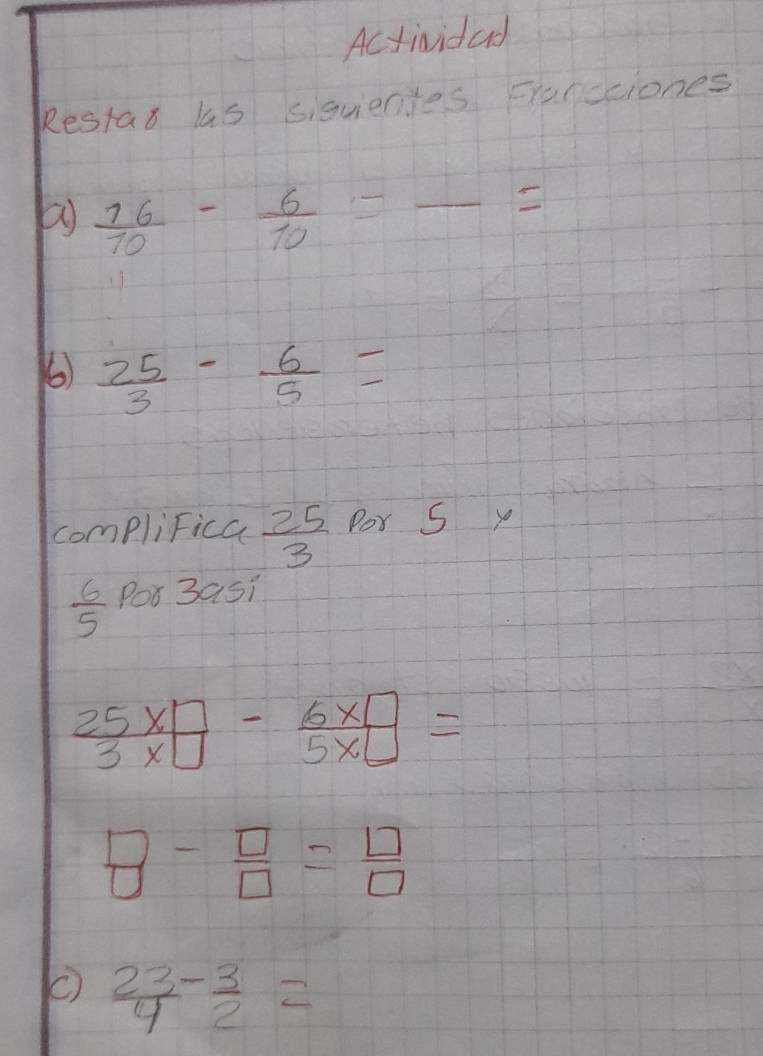 Actividad
Restar las siguientes Francciones
a) 16/10 - 6/10 = — =
b) 25/3 - 6/5 =
complifica 25/3 por 5 y
6/5 por 3 asi
25 x□/3 x□ - 6 x□/5 x□ =
□/□ - □/□ = □/□
c) 23/4 - 3/2 =